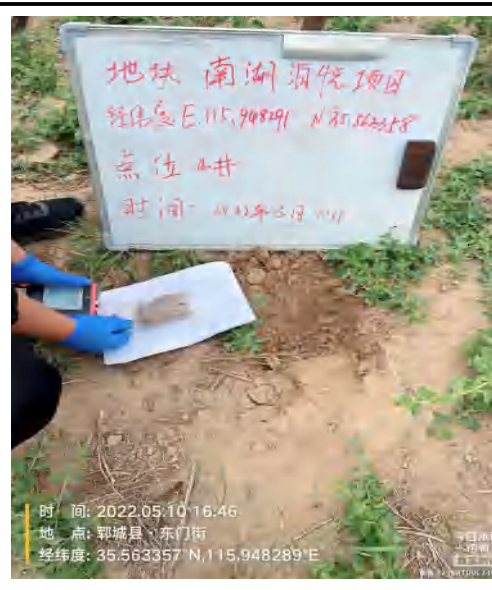 地块 南湖润悦项目
经纬度 E 115.948291 N 35.563358
点位 4#
时间: 2022年5月10日
时 间: 2022.05.10 16:46
地 点: 郓城县·东门街
经纬度: 35.563357°N,115.948289°E